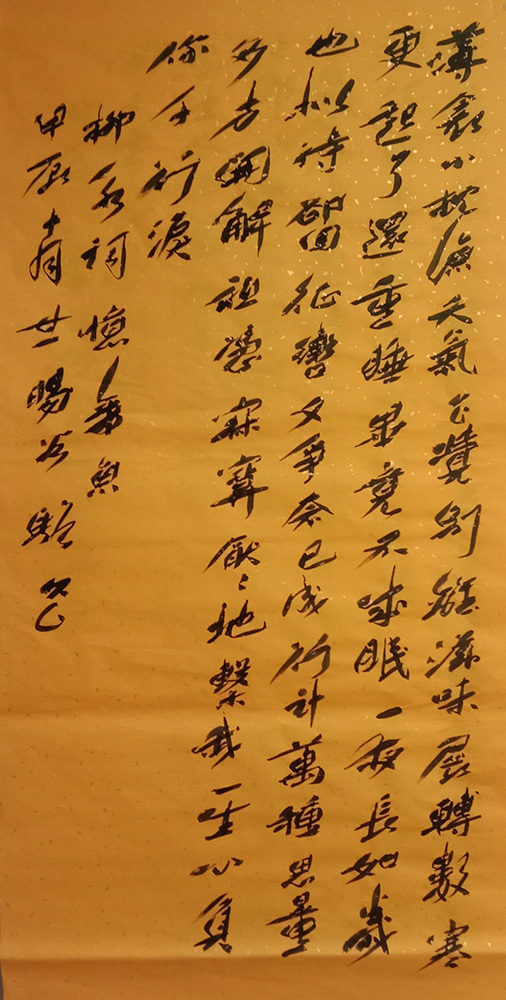 薄衾小枕涼天氣乍覺別離滋味展轉數寒
更起了還重睡畢竟不成眠一夜長如歲
也拟待卻回征轡又爭奈已成行計萬種思量
多方開解祗恁寂寞厭々地繫我一生心負
你千行淚
柳永詞憶帝京
甲辰